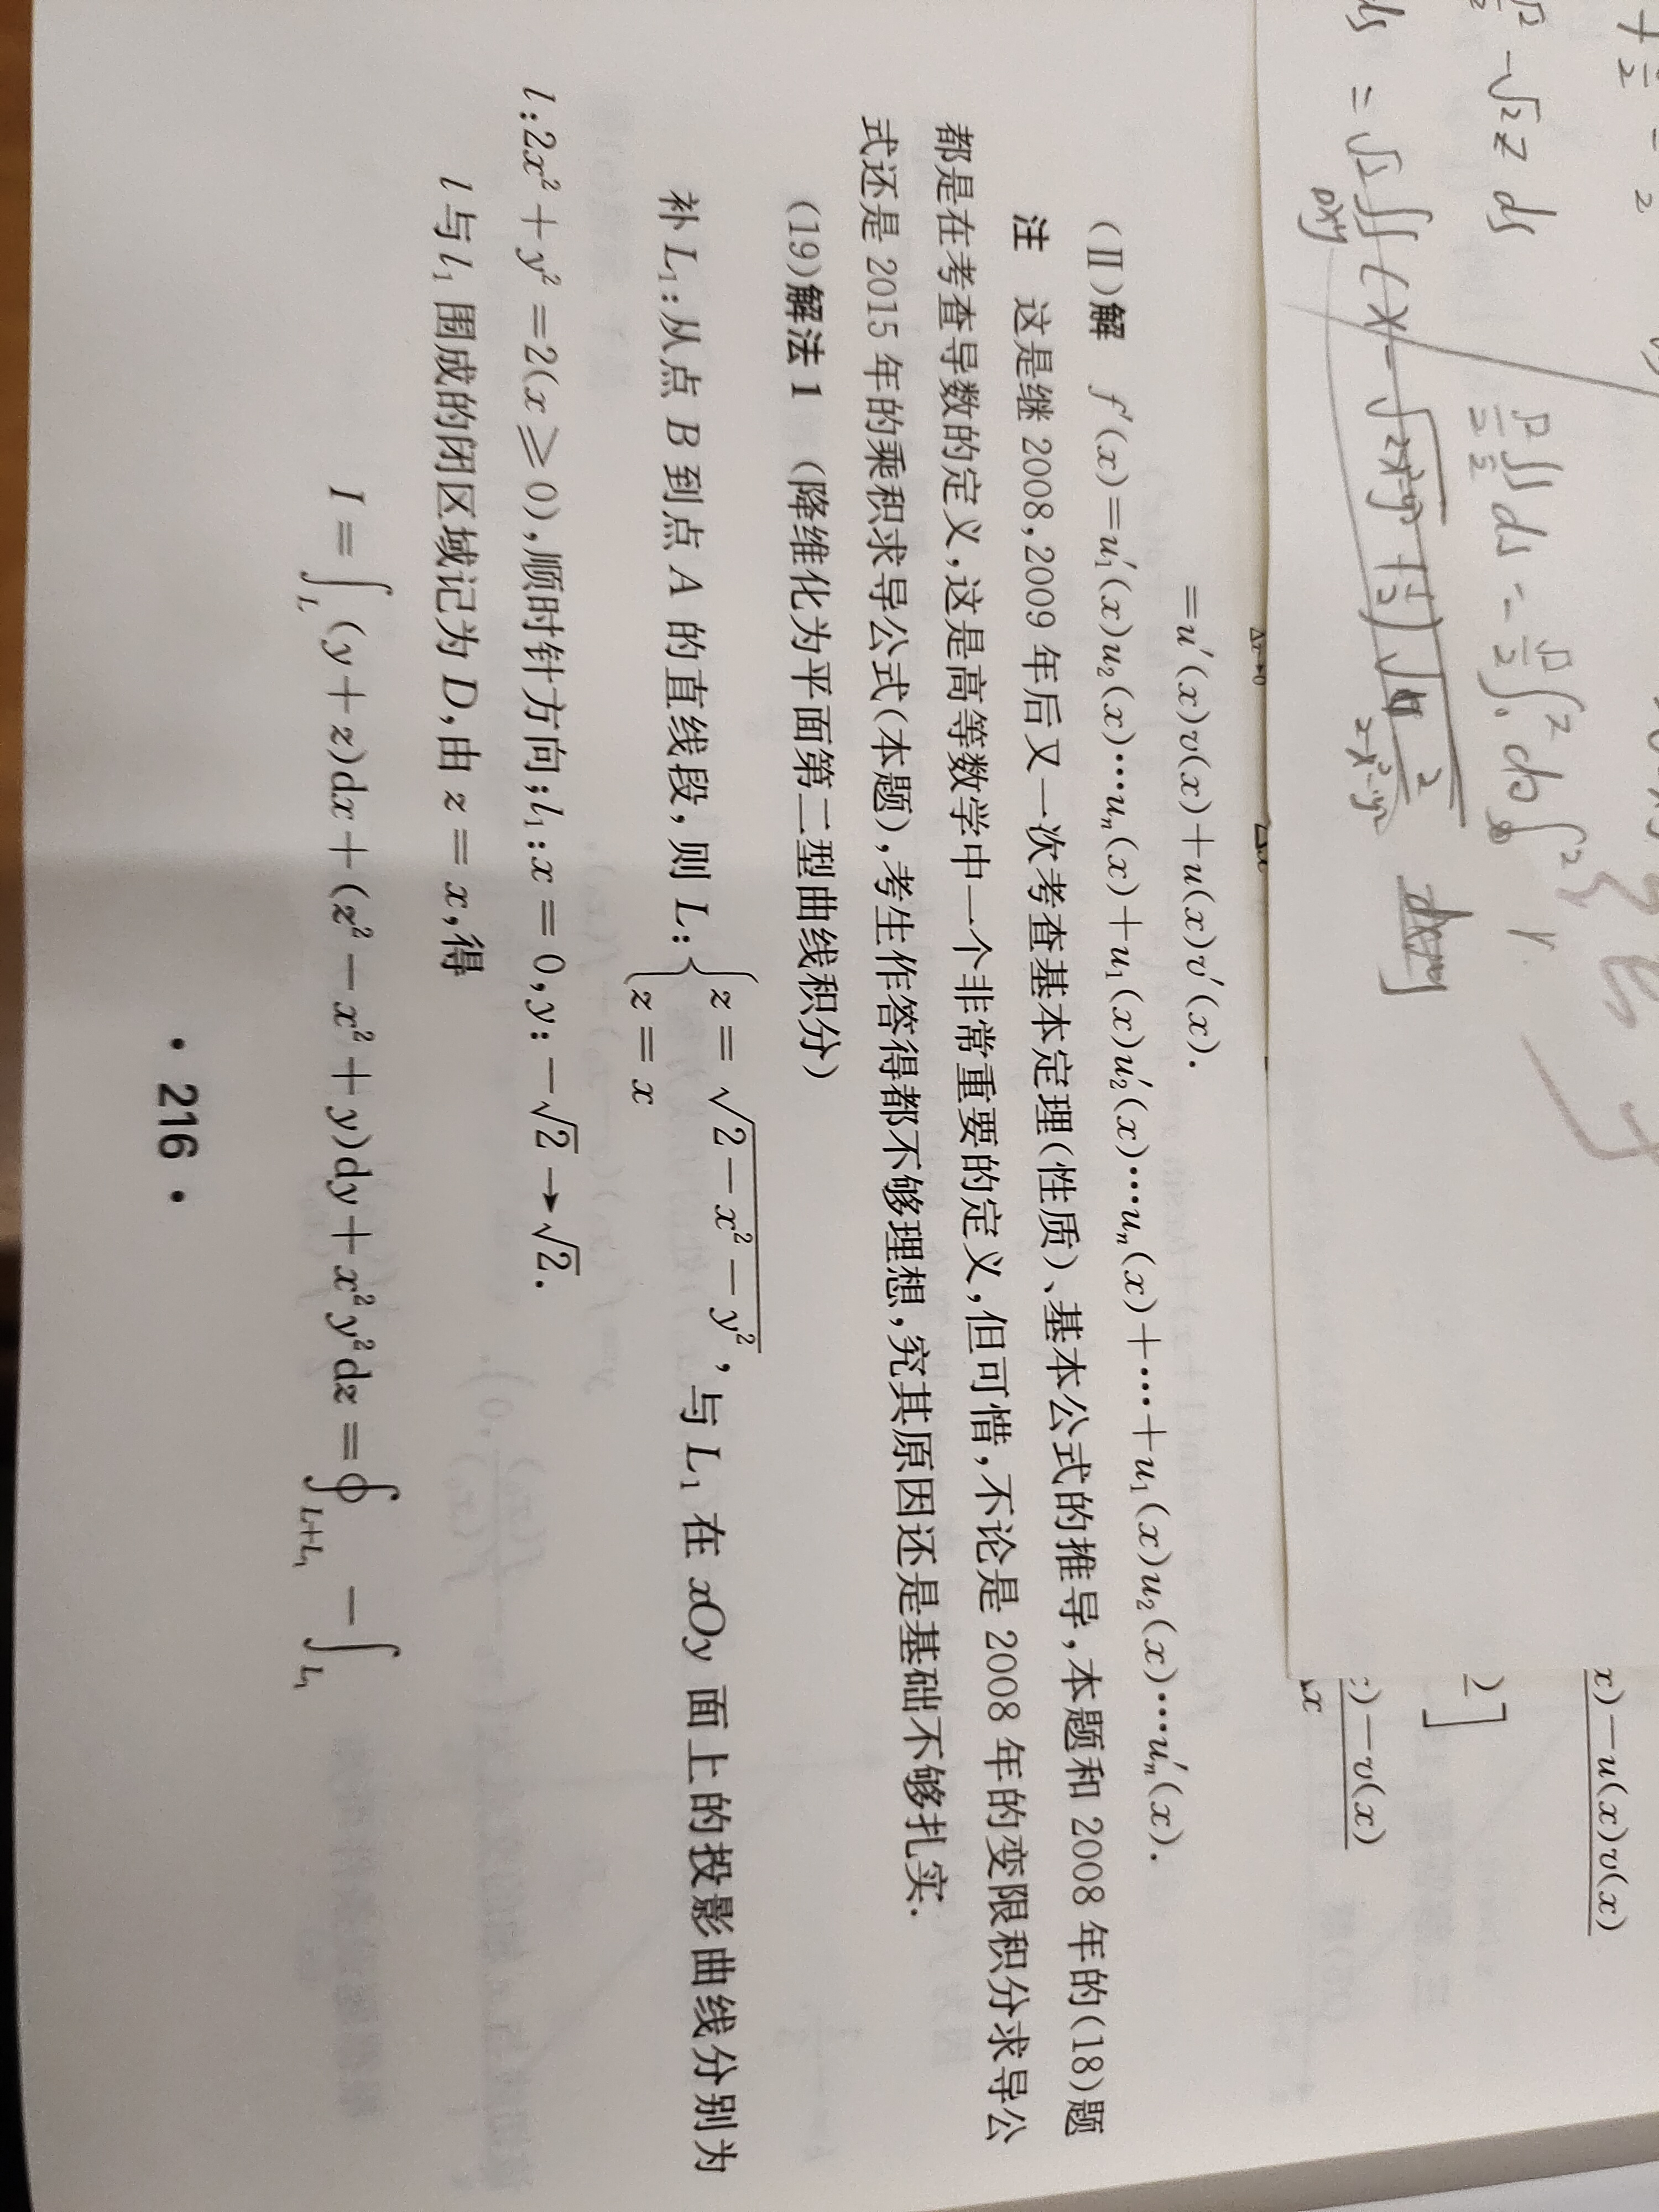 x)-u(x)v(x)
)]
:)-v(x)
x
=u′(x)v(x)+u(x)v′(x).
(Ⅱ)解 f′(x)=u₁′(x)u₂(x)⋯uₙ(x)+u₁(x)u₂′(x)⋯uₙ(x)+⋯+u₁(x)u₂(x)⋯uₙ′(x).
注 这是继 2008,2009 年后又一次考查基本定理(性质)、基本公式的推导,本题和 2008 年的(18)题
都是在考查导数的定义,这是高等数学中一个非常重要的定义,但可惜,不论是 2008 年的变限积分求导公
式还是 2015 年的乘积求导公式(本题),考生作答得都不够理想,究其原因还是基础不够扎实.
(19)解法 1 (降维化为平面第二型曲线积分)
补 L₁:从点 B 到点 A 的直线段,则 L:{z=√(2-x²-y²), z=x 与 L₁ 在 xOy 面上的投影曲线分别为
l:2x²+y²=2(x≥0),顺时针方向;l₁:x=0,y:-√2→√2.
l 与 l₁ 围成的闭区域记为 D,由 z=x,得
I=∫_L (y+z)dx+(z²-x²+y)dy+x²y²dz=∮_{L+L₁} -∫_{L₁}
· 216 ·